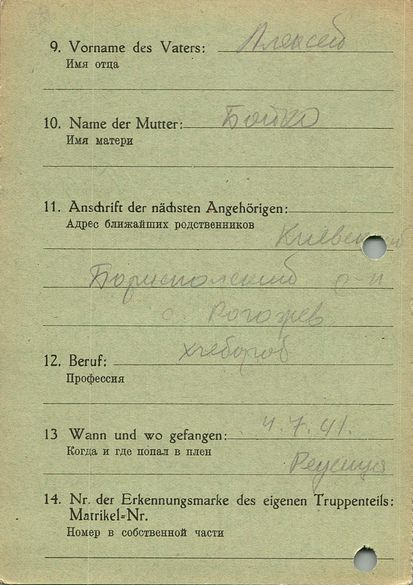 9. Vorname des Vaters: Алексей
Имя отца
10. Name der Mutter: Бойко
Имя матери
11. Anschrift der nächsten Angehörigen:
Адрес ближайших родственников
Киевский
Бориспольский р-н
с. Рогозев
12. Beruf: хлебороб
Профессия
13 Wann und wo gefangen: 4.7.41.
Когда и где попал в плен
14. Nr. der Erkennungsmarke des eigenen Truppenteils:
Matrikel=Nr.
Номер в собственной части